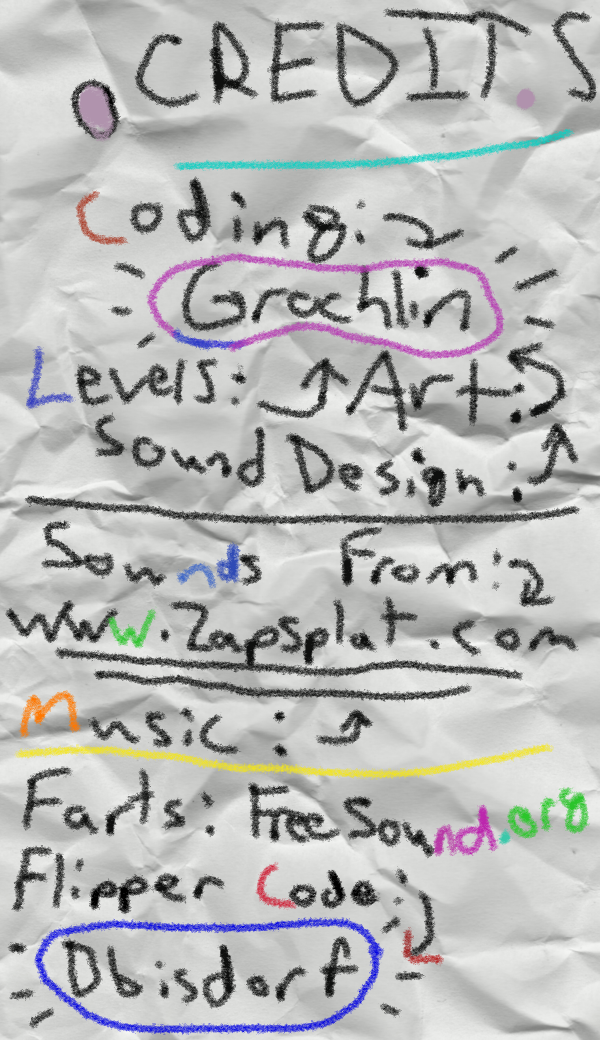 CREDITS
Coding:
Grachlin
Levels: Art:
Sound Design:
Sounds From:
www.zapsplat.com
Music:
Farts: FreeSound.org
Flipper Code:
Dbisdorf